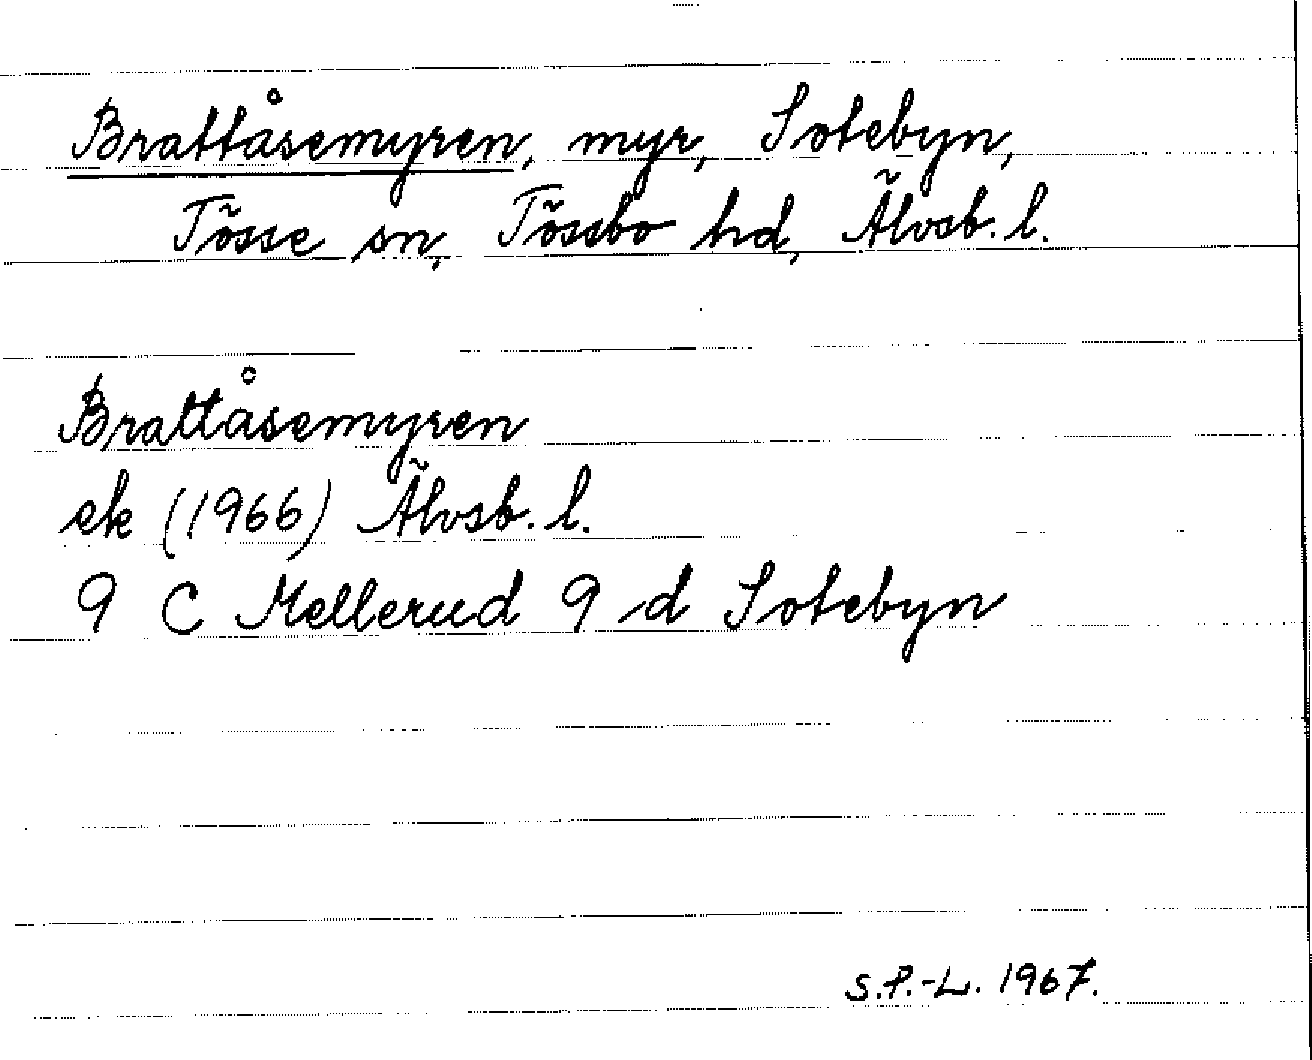 Brattåsemyren, myr, Sotebyn,
Tösse sn, Tössbo hd, Älvsb. l.
Brattåsemyren
ek (1966) Älvsb. l.
9 C Mellerud 9 d Sotebyn
S.P.-L. 1967.